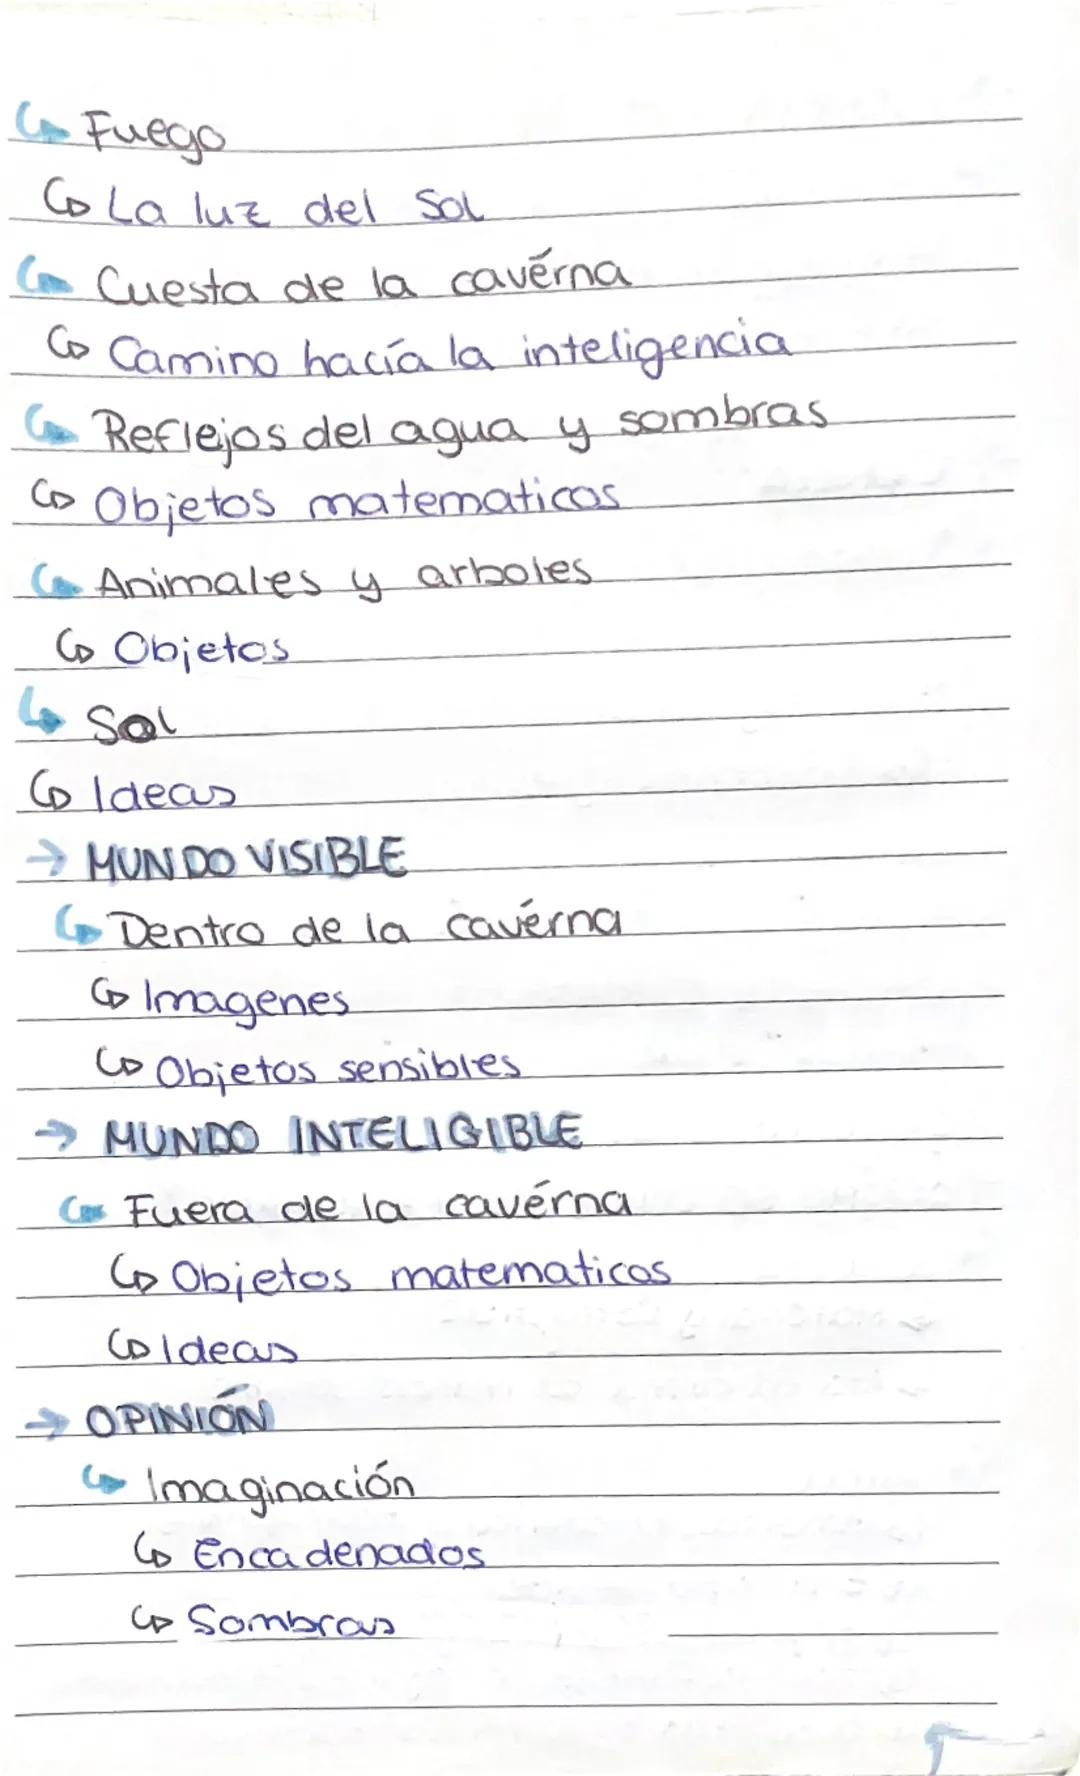 Fuego
La luz del Sol
Cuesta de la cavérna
Camino hacía la inteligencia
Reflejos del agua y sombras
Objetos matematicos
Animales y arboles
Objetos
Sol
Ideas
→ MUNDO VISIBLE
Dentro de la cavérna
Imagenes
Objetos sensibles
→ MUNDO INTELIGIBLE
Fuera de la cavérna
Objetos matematicos
Ideas
→ OPINIÓN
Imaginación
Encadenados
Sombras